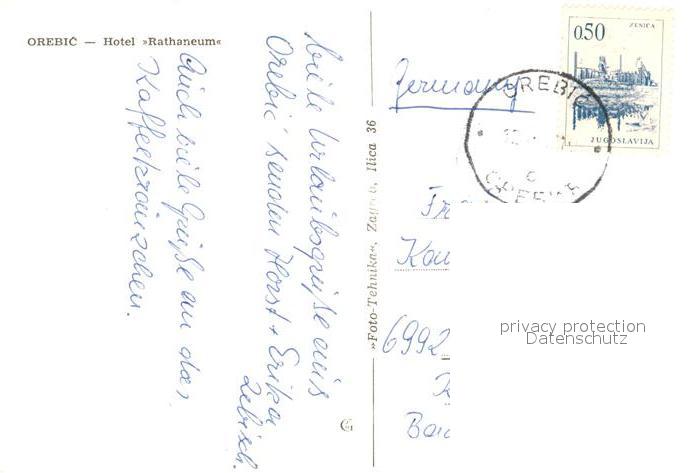 OREBIĆ — Hotel »Rathaneum«
Viele Urlaubsgrüße aus
Orebić senden Horst + Erika
Auch viele Grüße an das
Kaffeekränzchen.
»Foto-Tehnika«, Zagreb, Ilica 36
Germany
0.50
ZENICA
JUGOSLAVIJA
OREBIĆ
6992
privacy protection
Datenschutz